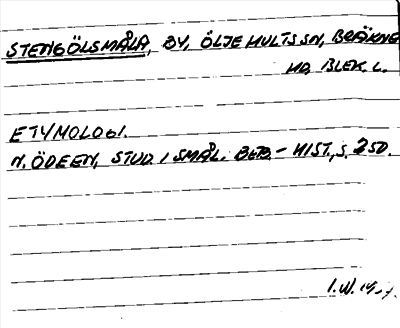 STENGÖLSMÅLA, BY, ÖLJEHULTS SN, BRÄKNE
HD BLEK. L.
ETYMOLOGI.
N. ÖDEEN, STUD. I SMÅL. BEB.-HIST., S. 250.
I.W.